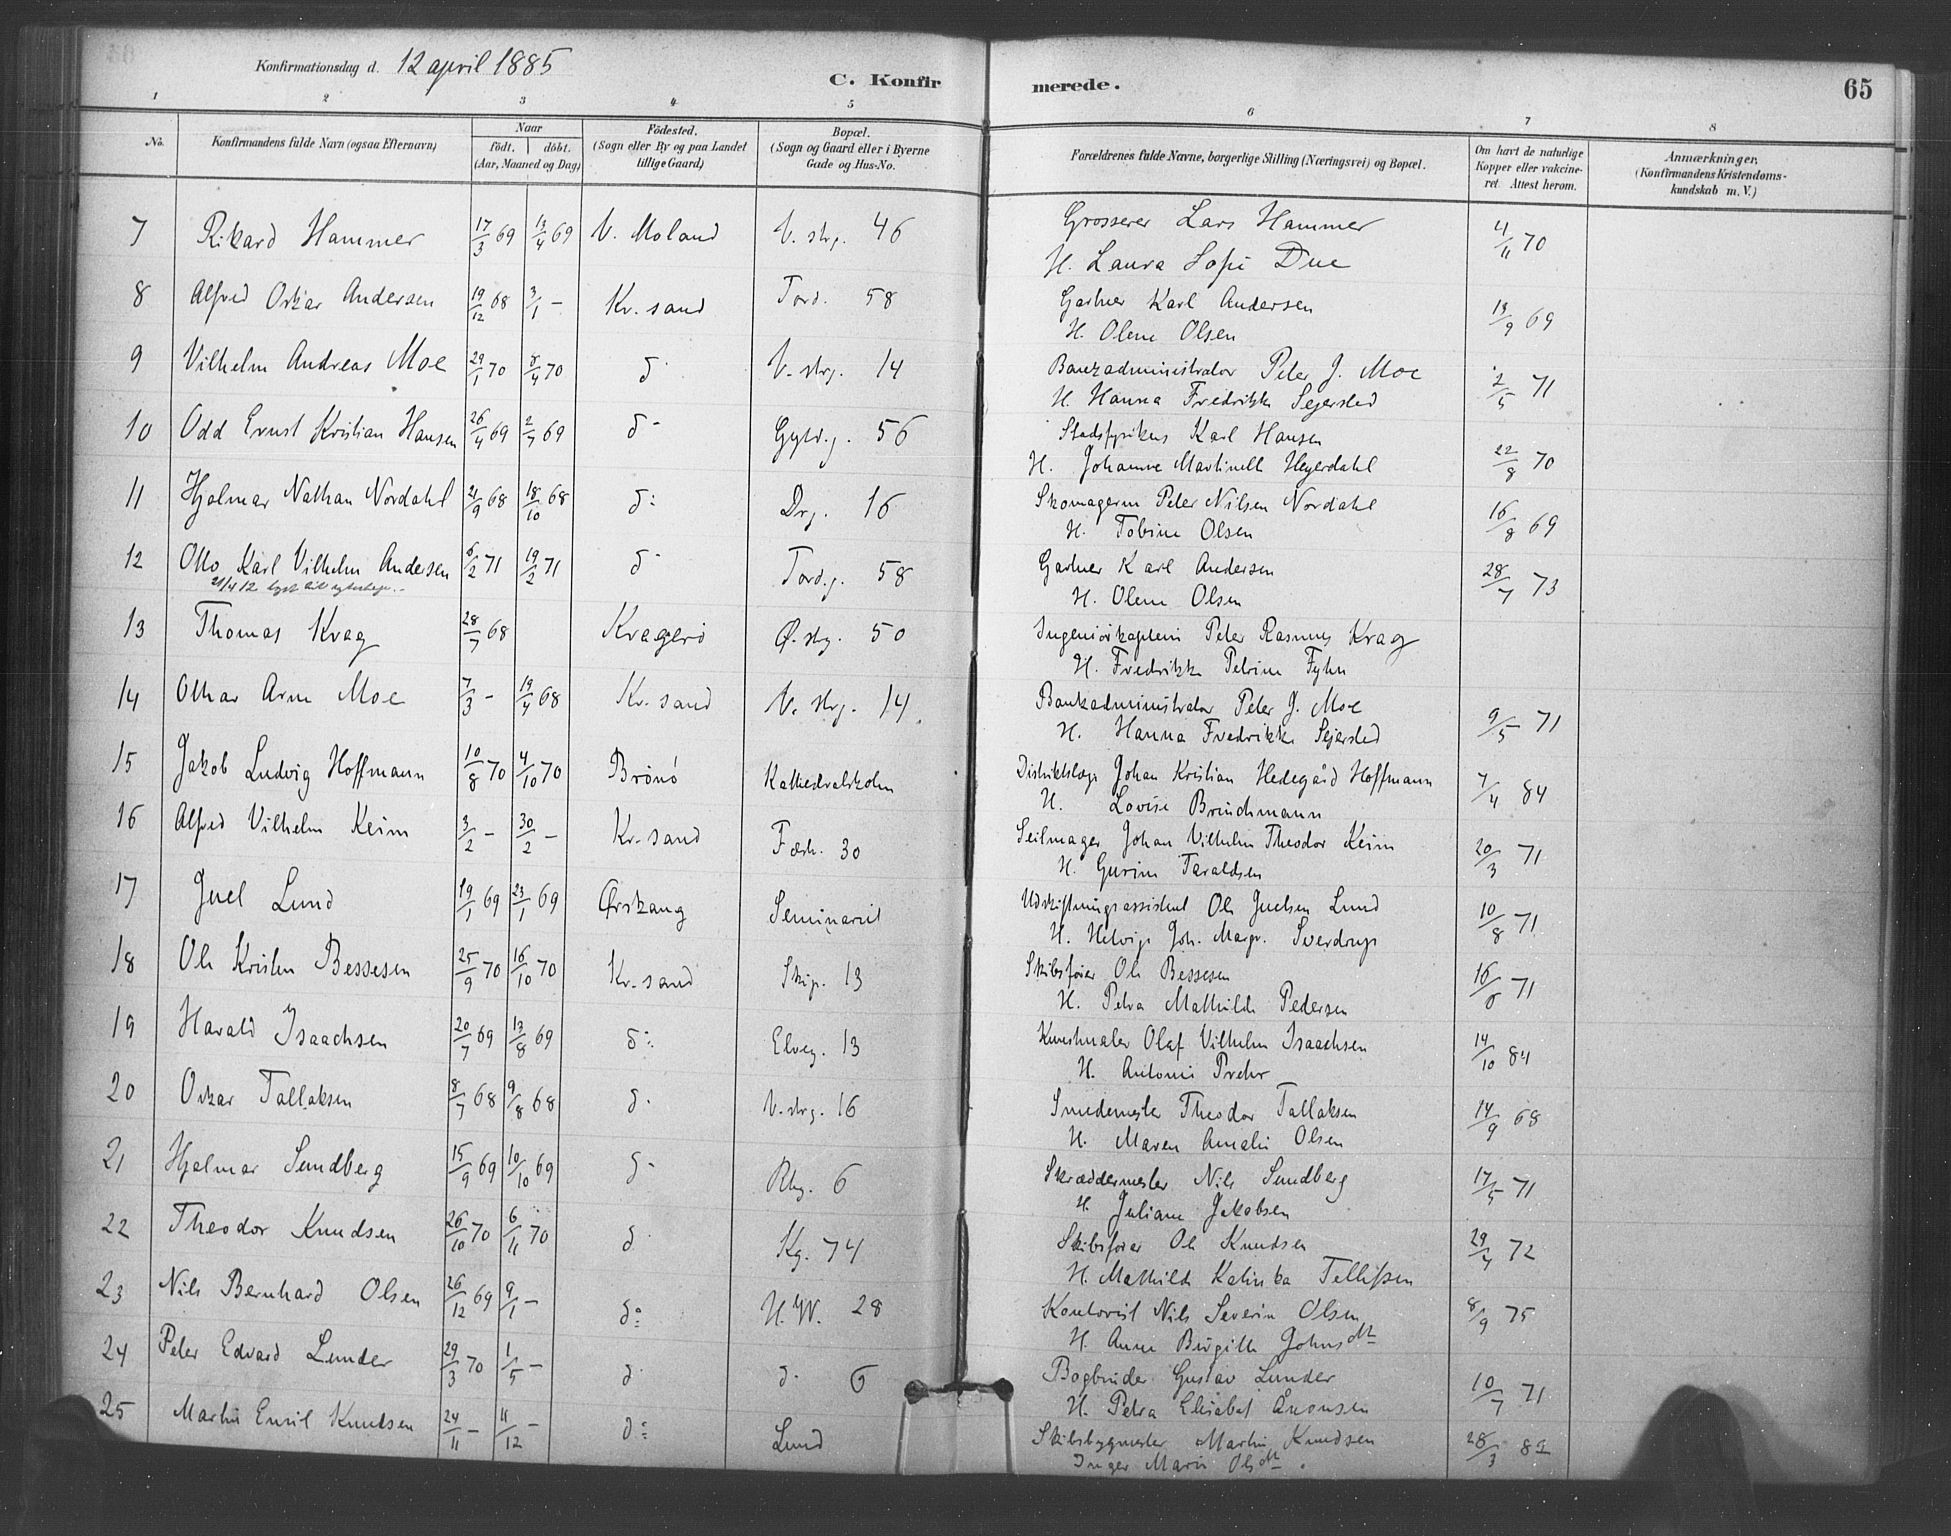 Konfirmationsdag d. 12 april 1885
C. Konfirmerede.
65
1 2 3 4 5 6 7 8
No. Konfirmandens fulde Navn (ogsaa Efternavn) Naar födt. döbt. (Aar, Maaned og Dag) Födested. (Sogn eller By og paa Landet tillige Gaard) Bopæl. (Sogn og Gaard eller i Byerne Gade og Hus-No. Forældrenes fulde Navne, borgerlige Stilling (Næringsvei) og Bopæl. Om havt de naturlige Kopper eller vakcineret. Attest herom. Anmærkninger. (Konfirmandens Kristendomskundskab m. V.)
7 Rikard Hammer 17/3 69 13/4 69 V. Moland V. strg. 46 Grosserer Lars Hammer 4/11 70
H. Laura Sofie Due
8 Alfred Oskar Andersen 19/12 68 3/1 - Kr.sand Tord. 58 Gartner Karl Andersen 13/9 69
H. Olene Olsen
9 Vilhelm Andreas Moe 29/1 70 8/4 70 d V. strg. 14 Bankadministrator Peter J. Moe 2/5 71
H Hanna Fredrikke Sejersted
10 Odd Ernst Kristian Hansen 26/4 69 2/7 69 d Gyld.g. 56 Stadsfysikus Karl Hansen 22/8 70
H. Johanne Martinelle Heyerdahl
11 Hjalmar Nathan Nordahl 21/9 68 18/10 68 d: Drg. 16 Skomagerm Peter Nilsen Nordahl 16/8 69
H. Tobine Olsen
12 Otto Karl Vilhelm Andersen 6/2 71 19/2 71 d Tord.g. 58 Gartner Karl Andersen 28/7 73
21/4 12 lyst til
H. Olene Olsen
13 Thomas Krag 28/7 68 Kragerö Ø. strg. 50 Ingeniörkaptein Peter Rasmus Krag
H. Fredrikke Petrine Fyhn
14 Othar Arne Moe 7/3 - 19/4 68 Kr.sand V. strg. 14 Bankadministrator Peter J. Moe 9/5 71
H. Hanna Fredrikke Sejersted
15 Jakob Ludvig Hoffmann 10/8 70 4/10 70 Brönö Kathedralskolen Distriktslæge Johan Kristian Hedegård Hoffmann 7/4 84
H. Lovise Brinchmann
16 Alfred Vilhelm Keim 3/2 - 30/2 - Kr.sand Fæst. 30 Seilmager Johan Vilhelm Theodor Keim 20/3 71
H. Gurine Taraldsen
17 Juel Lund 19/1 69 23/1 69 Ørskaug Seminariet Udskiftningsassistent Ole Juelsen Lund 10/8 71
H. Helvig Joh. Margr. Sverdrup
18 Ole Kristen Bessesen 25/9 70 16/10 70 Kr.sand Skip. 13 Skibsförer Ole Bessesen 16/8 71
H. Petra Mathilde Pedersen
19 Harald Isaachsen 20/7 69 13/8 69 d: Elveg. 13 Kunstmaler Olaf Vilhelm Isaachsen 14/10 84
H. Antonie
20 Oskar Tallaksen 8/7 68 9/8 68 d. V. strg. 16 Smedemester Theodor Tallaksen 14/9 68
H. Maren Amalie Olsen
21 Hjalmar Sundberg 15/9 69 10/10 69 d Rhg. 6 Skræddermester Nils Sundberg 17/5 71
H. Juliane Jakobsen
22 Theodor Knudsen 26/10 70 6/11 70 d Kg. 74 Skibsförer Ole Knudsen 29/4 72
H. Mathilde Kalinka Tellifsen
23 Nils Bernhard Olsen 26/12 69 9/1 - d: H.W. 28 Kontorist Nils Severin Olsen 8/9 75
H. Anne Birgitte Johnsdt
24 Peter Edvard Lunder 29/3 70 1/5 - d d. 6 Bogbinder Gustav Lunder 10/7 71
H. Petra Elisabet Aronsen
25 Martin Emil Knudsen 24/11 - 11/12 - d: Lund Skibsbygmester Martin Knudsen 28/3 82
Inger Marie Olsdt.